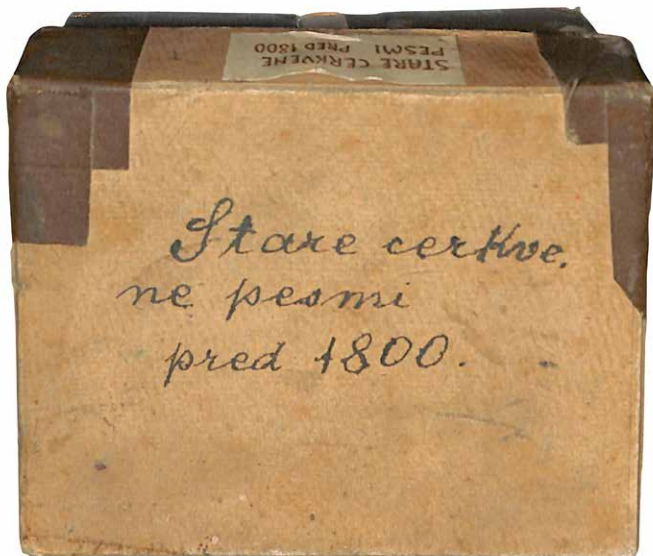 STARE CERKVENE
PESMI PRED 1800
Stare cerkve.
ne pesmi
pred 1800.